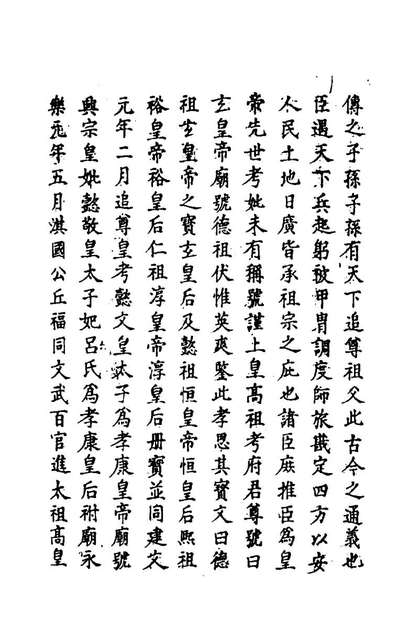 傳之子孫子孫有天下追尊祖父此古今之通義也
臣遇天下兵起躬被甲胄調度師旅戡定四方以安
人民土地日廣皆承祖宗之庇也諸臣庶推臣爲皇
帝先世考妣未有稱號謹上皇高祖考府君尊號曰
玄皇帝廟號德祖伏惟英爽鑒此孝思其寳文曰德
祖玄皇帝之寳玄皇后及懿祖恒皇帝恒皇后熙祖
裕皇帝裕皇后仁祖淳皇帝淳皇后册寳並同建文
元年二月追尊皇考懿文皇太子爲孝康皇帝廟號
興宗皇妣懿敬皇太子妃呂氏爲孝康皇后祔廟永
樂元年五月淇國公丘福同文武百官進太祖高皇